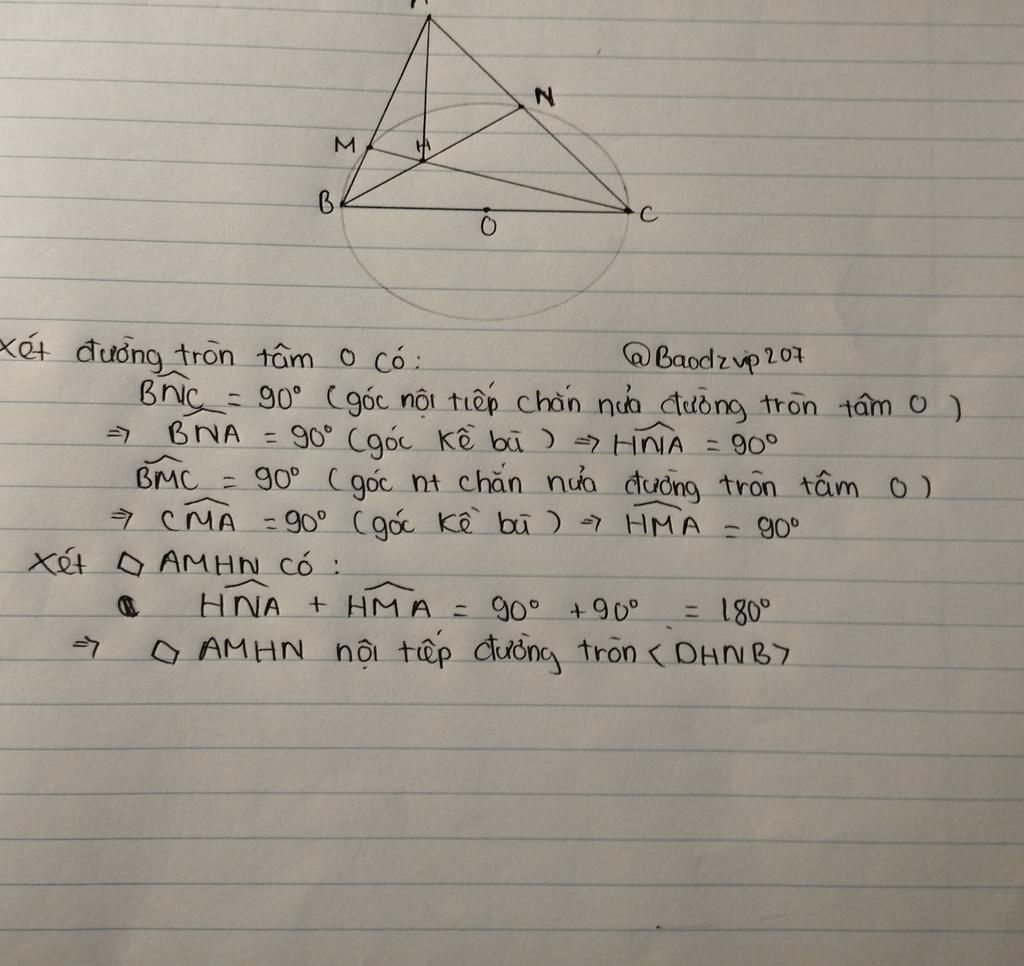 A
N
M
H
B
O
C
Xét đường tròn tâm O có:
@Baodzvip207
BNC = 90° (góc nội tiếp chắn nửa đường tròn tâm O)
⇒ BNA = 90° (góc kề bù) ⇒ HNA = 90°
BMC = 90° (góc nt chắn nửa đường tròn tâm O)
⇒ CMA = 90° (góc kề bù) ⇒ HMA = 90°
Xét ◇ AMHN có:
HNA + HMA = 90° + 90° = 180°
⇒ ◇ AMHN nội tiếp đường tròn <DHNB>